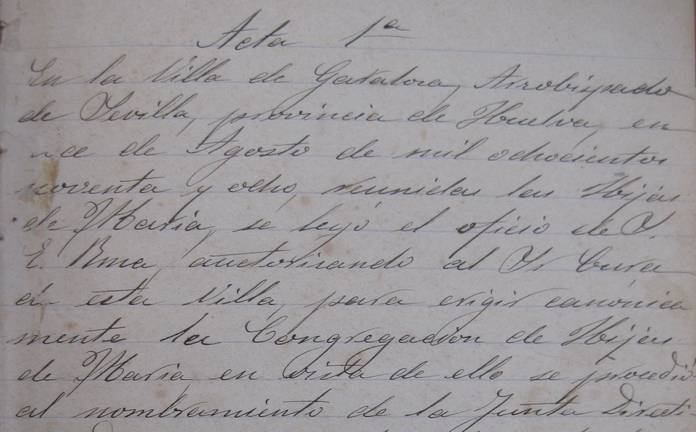 Acta 1ª
En la Villa de Galaroza, Arzobispado
de Sevilla, provincia de Huelva, en
de Agosto de mil ochocientos
noventa y ocho, reunidas las Hijas
de Maria, se leyó el oficio de S.
E. Rma, auctorizando al Sr Cura
de esta Villa, para erigir canónica
mente la Congregacion de Hijas
de Maria, en vista de ello se procedió
al nombramiento de la Junta Directi-